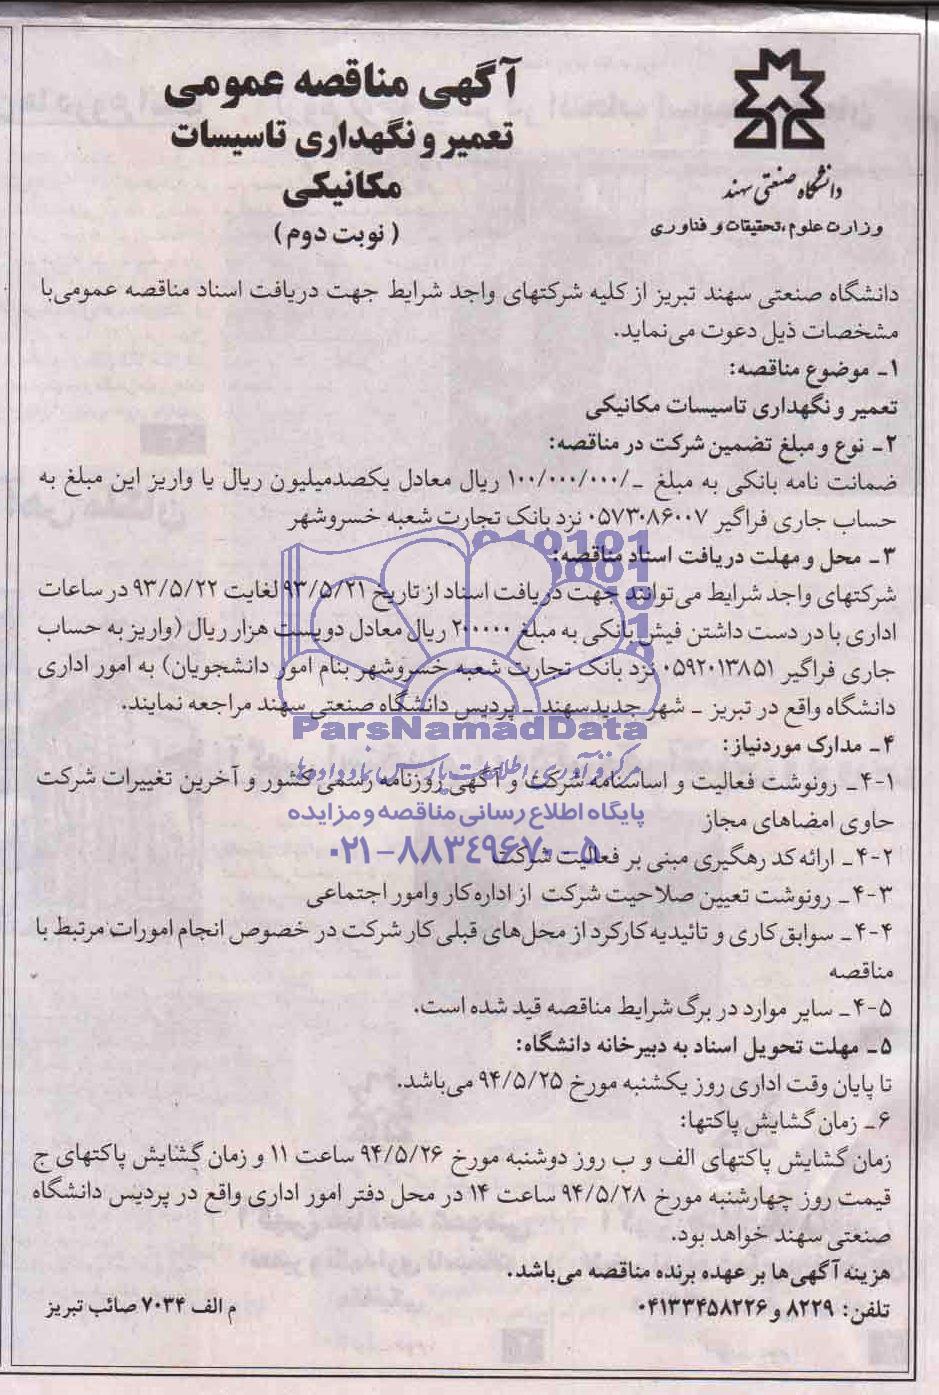 آگهی مناقصه عمومی
تعمیر و نگهداری تاسیسات
مکانیکی
( نوبت دوم )
دانشگاه صنعتی سهند
وزارت علوم، تحقیقات و فناوری
دانشگاه صنعتی سهند تبریز از کلیه شرکتهای واجد شرایط جهت دریافت اسناد مناقصه عمومی‌با
مشخصات ذیل دعوت می‌نماید.
۱ـ موضوع مناقصه:
تعمیر و نگهداری تاسیسات مکانیکی
۲ـ نوع و مبلغ تضمین شرکت در مناقصه:
ضمانت نامه بانکی به مبلغ ـ/۱۰۰/۰۰۰/۰۰۰ ریال معادل یکصدمیلیون ریال یا واریز این مبلغ به
حساب جاری فراگیر ۰۵۷۳۰۸۶۰۰۷ نزد بانک تجارت شعبه خسروشهر
۳ـ محل و مهلت دریافت اسناد مناقصه:
شرکتهای واجد شرایط می‌توانند جهت دریافت اسناد از تاریخ ۹۳/۵/۲۱ لغایت ۹۳/۵/۲۲ در ساعات
اداری با در دست داشتن فیش بانکی به مبلغ ۲۰۰۰۰۰ ریال معادل دویست هزار ریال (واریز به حساب
جاری فراگیر ۰۵۹۲۰۱۳۸۵۱ نزد بانک تجارت شعبه خسروشهر بنام امور دانشجویان) به امور اداری
دانشگاه واقع در تبریز ـ شهر جدید سهند ـ پردیس دانشگاه صنعتی سهند مراجعه نمایند.
ParsNamadData
۴ـ مدارک موردنیاز:
مرکز فرآوری اطلاعات پارس نماد داده ها
۴-۱ـ رونوشت فعالیت و اساسنامه شرکت و آگهی روزنامه رسمی کشور و آخرین تغییرات شرکت
حاوی امضاهای مجاز
پایگاه اطلاع رسانی مناقصه و مزایده
۴-۲ـ ارائه کد رهگیری مبنی بر فعالیت شرکت
۰۲۱-۸۸۳۴۹۶۷۰-۵
۴-۳ـ رونوشت تعیین صلاحیت شرکت از اداره کار وامور اجتماعی
۴-۴ـ سوابق کاری و تائیدیه کارکرد از محل‌های قبلی کار شرکت در خصوص انجام امورات مرتبط با
مناقصه
۴-۵ـ سایر موارد در برگ شرایط مناقصه قید شده است.
۵ـ مهلت تحویل اسناد به دبیرخانه دانشگاه:
تا پایان وقت اداری روز یکشنبه مورخ ۹۴/۵/۲۵ می‌باشد.
۶ـ زمان گشایش پاکتها:
زمان گشایش پاکتهای الف و ب روز دوشنبه مورخ ۹۴/۵/۲۶ ساعت ۱۱ و زمان گشایش پاکتهای ج
قیمت روز چهارشنبه مورخ ۹۴/۵/۲۸ ساعت ۱۴ در محل دفتر امور اداری واقع در پردیس دانشگاه
صنعتی سهند خواهد بود.
هزینه آگهی‌ها بر عهده برنده مناقصه می‌باشد.
تلفن: ۸۲۲۹ و ۰۴۱۳۳۴۵۸۲۲۶
م الف ۷۰۳۴ صائب تبریز